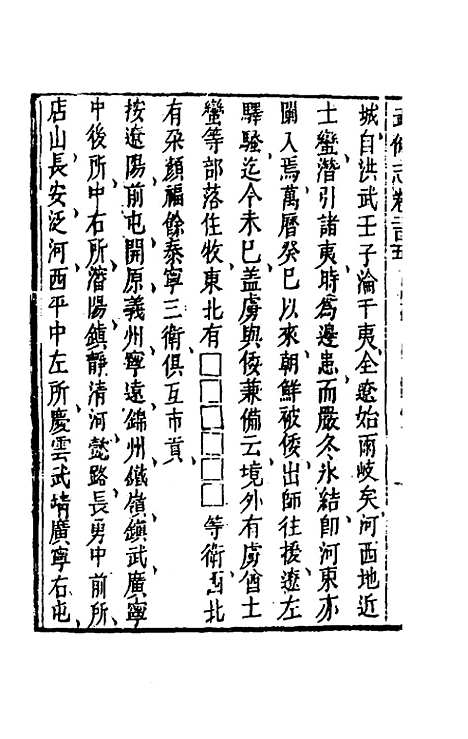 武備志卷二百五
城自洪武壬子淪于夷全遼始兩岐矣河西地近
士蠻潛引諸夷時為邊患而嚴冬氷結即河東亦
闌入焉萬曆癸巳以來朝鮮被倭出師往援遼左
驛騷迄今未已盖虜與倭兼備云境外有虜酋土
蠻等部落住牧東北有□□□□□□等衛西北
有朶顏福餘泰寧三衛俱互市貢
按遼陽前屯開原義州寧遠錦州鐵嶺鎮武廣寧
中後所中右所瀋陽鎮靜清河懿路長勇中前所
店山長安泛河西平中左所慶雲武靖廣寧右屯